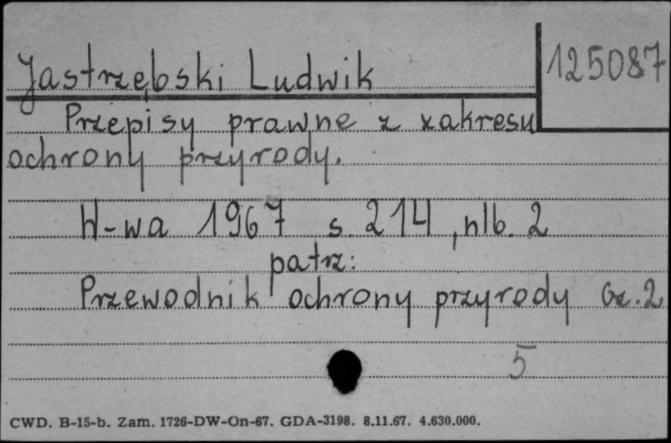 Jastrzębski Ludwik
125087
Przepisy prawne z zakresu
ochrony przyrody.
W-wa 1967 s. 214, nlb. 2
patrz:
Przewodnik ochrony przyrody Cz. 2
5
CWD. B-15-b. Zam. 1726-DW-On-67. GDA-3198. 8.11.67. 4.630.000.